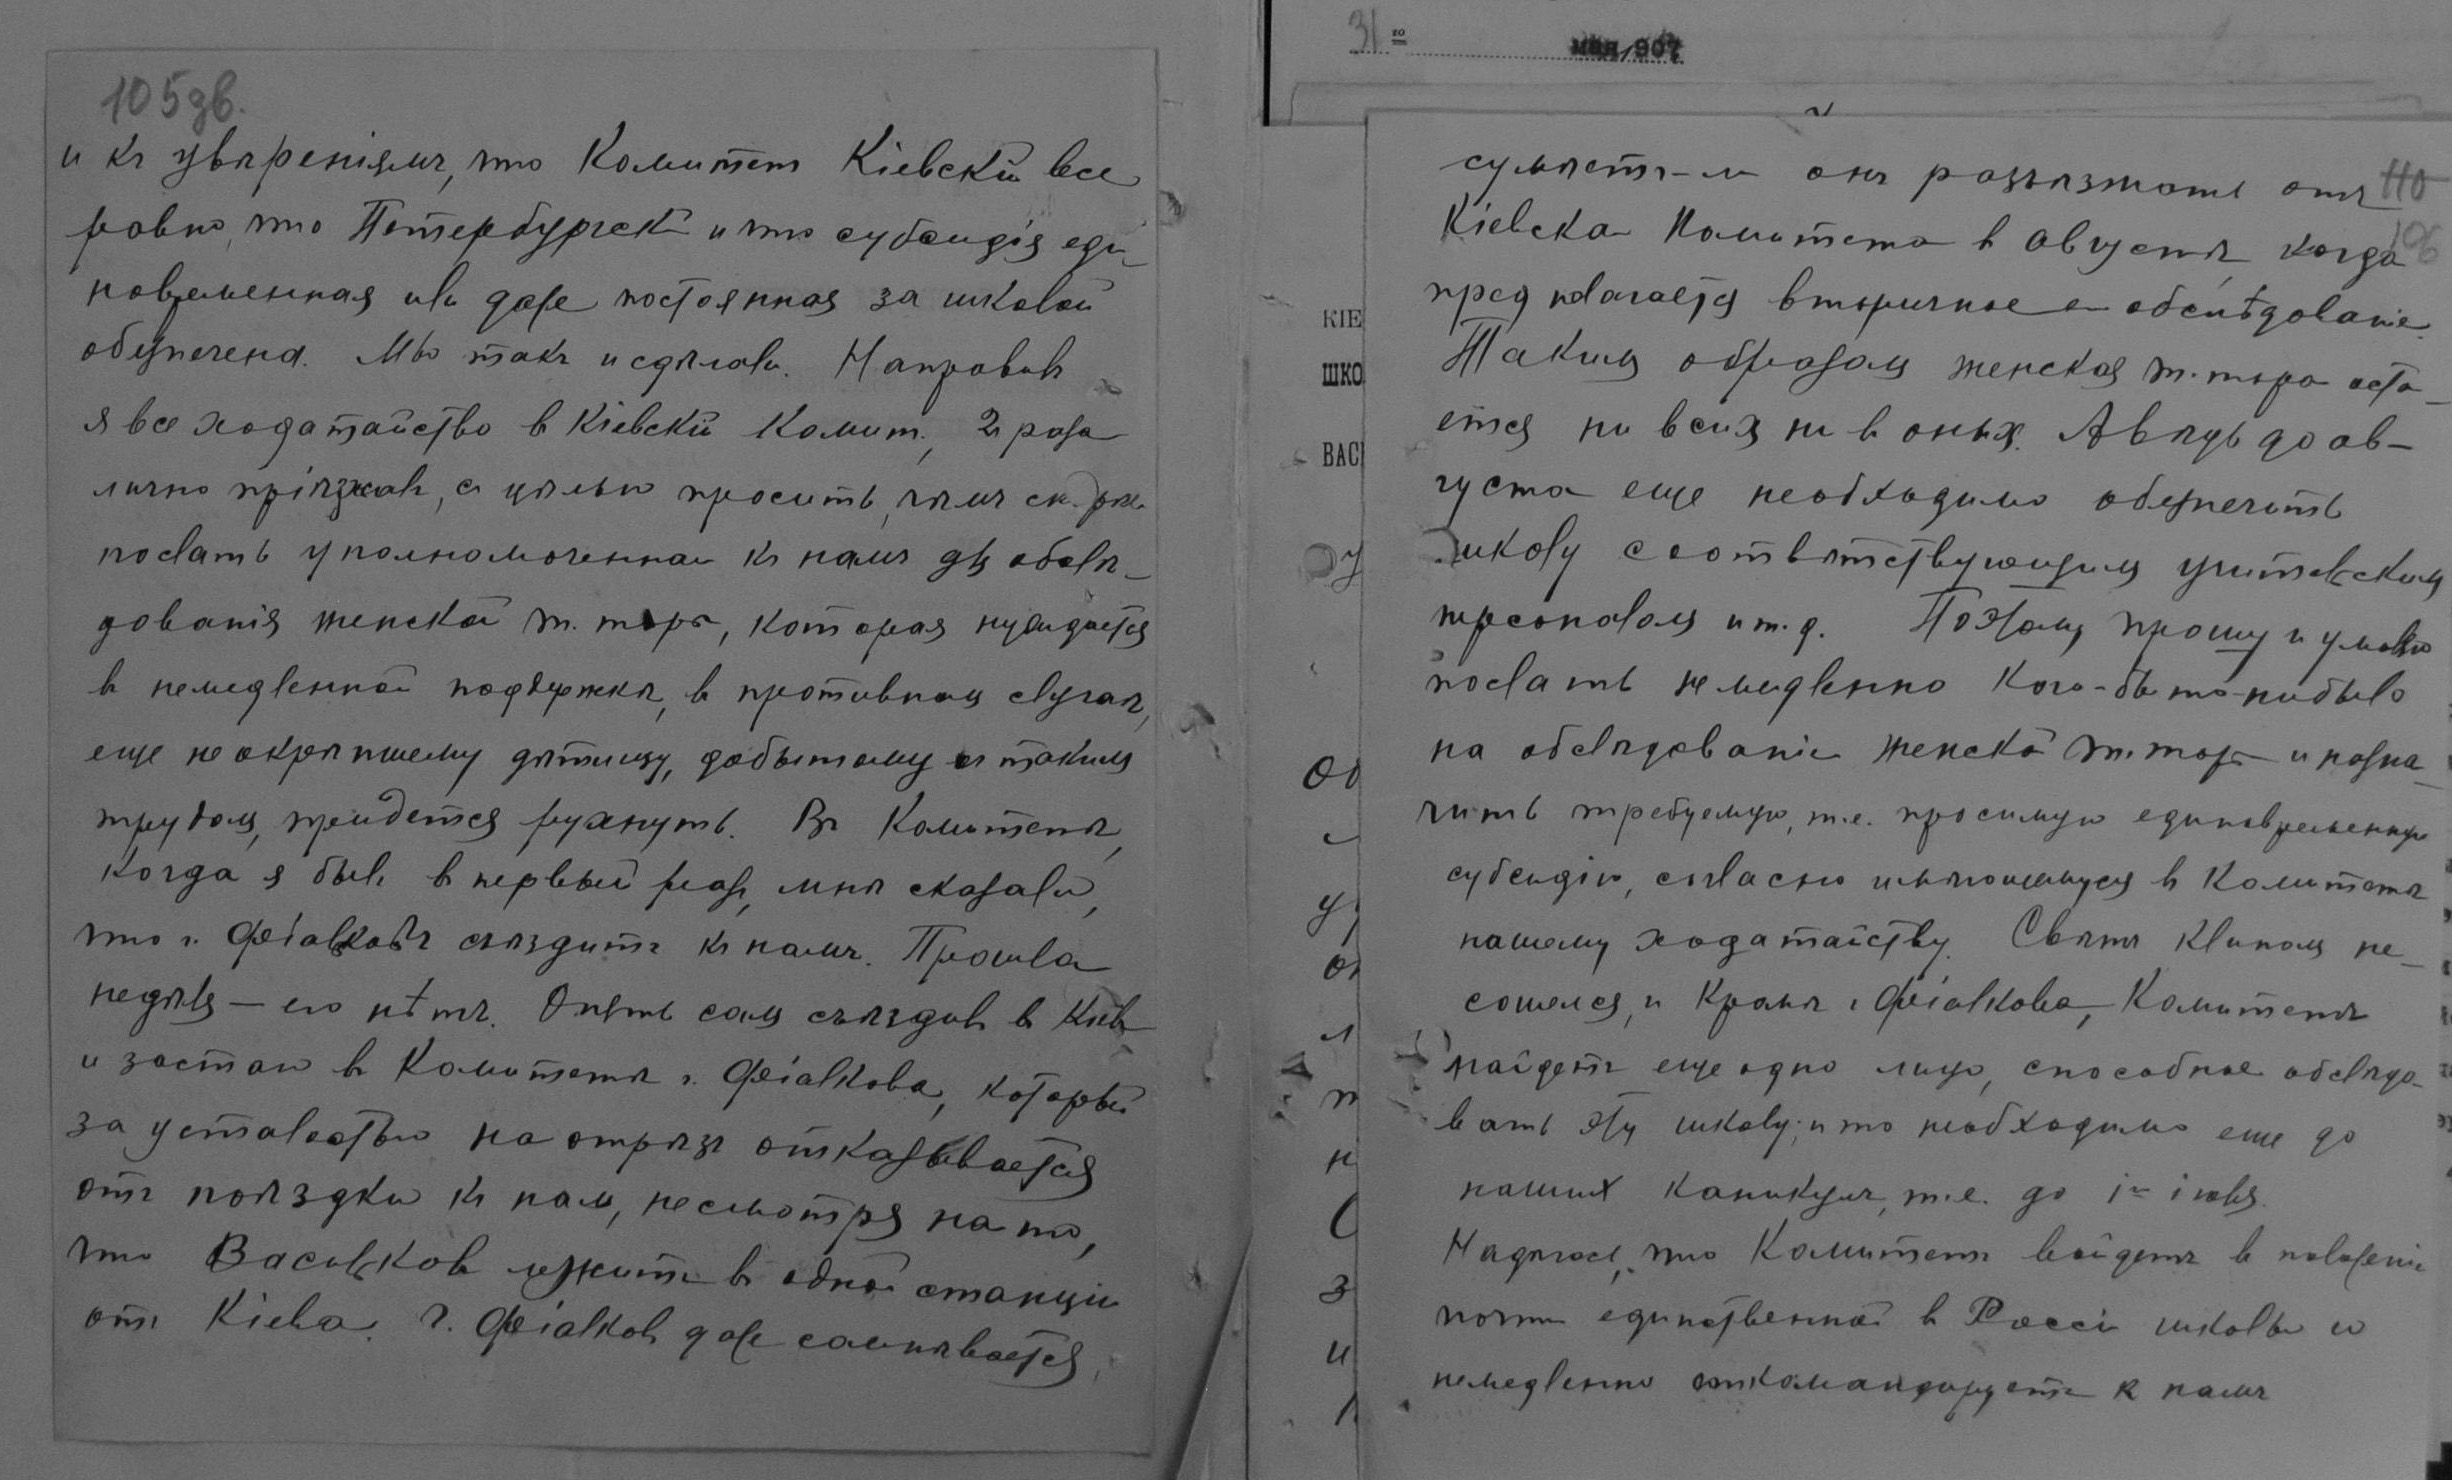 105 зв.
и къ увѣреніямъ, что Комитет Кіевскій все
равно, что Петербургскій и что субсидія еди-
новременная или даже постоянная за школой
обезпечена. Мы такъ и сдѣлали. Направивъ
я все ходатайство в Кіевскій Комит., 2 раза
лично пріѣзжалъ, с цѣлью просить, чѣмъ скорѣе
послать уполномоченнаго къ намъ для обслѣ-
дованія женской т. торы, которая нуждается
в немедленной поддержкѣ, в противномъ случаѣ,
еще не окрѣпшему дѣтищу, добытому съ такимъ
трудомъ, прийдется рухнуть. Въ Комитетѣ,
когда я былъ в первый разъ, мнѣ сказали,
что г. Фіалковъ съѣздитъ къ намъ. Прошла
недѣля — его нѣтъ. Опять самъ съѣздилъ в Кіевъ
и застаю в Комитетѣ г. Фіалкова, который
за усталостью на отрѣзъ отказывается
отъ поѣздки къ нам, несмотря на то,
что Васильковъ лежитъ в одной станціи
отъ Кіева. Г. Фіалковъ даже сомнѣвается,
31 го мая 1907
110
106
сумѣетъ-ли онъ разъѣзжать отъ
Кіевска Комитета в августѣ, когда
предполагается вторичное обслѣдованіе.
Таким образомъ женская т. тора оста-
ется ни в сихъ ни в оныхъ. А вѣдь до ав-
густа еще необходимо обезпечить
школу соотвѣтствующимъ учительскимъ
персоналомъ и т. д. Поэтому прошу и умоляю
послать немедленно кого-бы то-нибыло
на обслѣдованіе женской т. торы и назна-
чить требуемую, т. е. просимую единовременную
субсидію, согласно имѣющемуся в Комитетѣ
нашему ходатайству. Свѣтъ клиномъ не
сошелся, и кромѣ г. Фіалкова, Комитетъ
найдетъ еще одно лицо, способное обслѣдо-
вать эту школу; и то необходимо еще до
нашихъ каникулъ, т. е. до 1-го іюля.
Надѣюсь, что Комитетъ войдетъ в положеніе
почти единственной в Россіи школы и
немедленно откомандируетъ к намъ
КІЕ
ШКО
ВАС